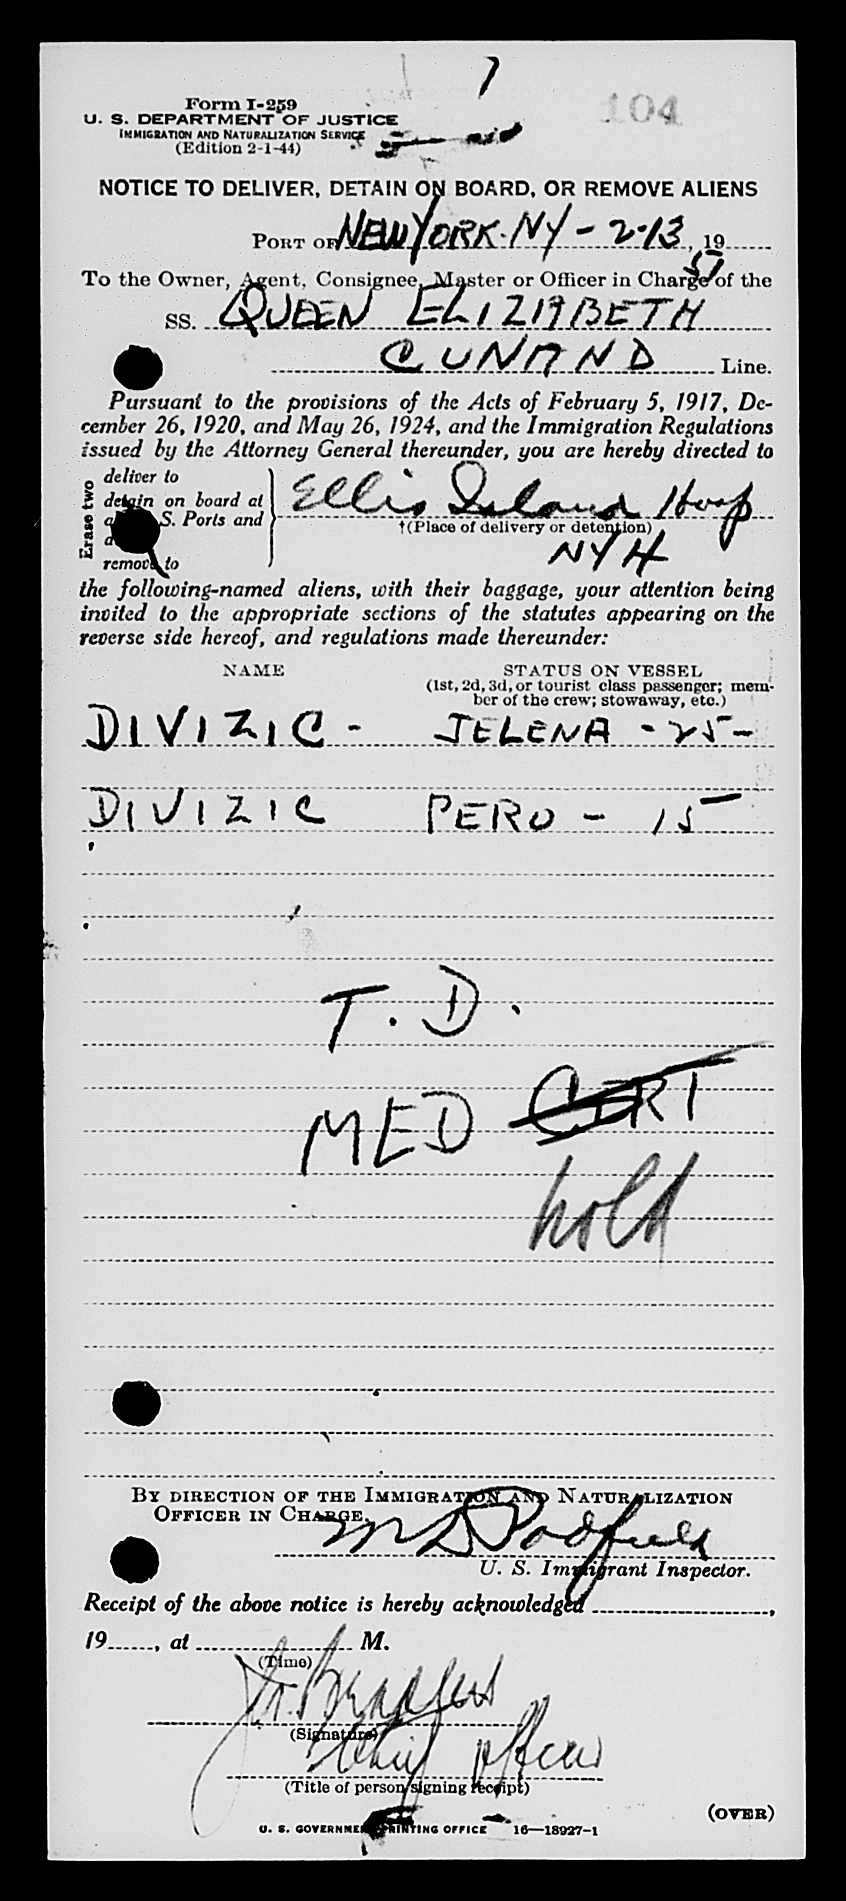 104
Form I-259
U. S. DEPARTMENT OF JUSTICE
IMMIGRATION AND NATURALIZATION SERVICE
(Edition 2-1-44)
NOTICE TO DELIVER, DETAIN ON BOARD, OR REMOVE ALIENS
PORT OF NEW YORK. NY - 2-13, 19
To the Owner, Agent, Consignee, Master or Officer in Charge of the
SS. QUEEN ELIZABETH
CUNARD Line.
Pursuant to the provisions of the Acts of February 5, 1917, De-
cember 26, 1920, and May 26, 1924, and the Immigration Regulations
issued by the Attorney General thereunder, you are hereby directed to
Erase two
deliver to
detain on board at
S. Ports and
remove to
Ellis Island Hosp
†(Place of delivery or detention)
NYH
the following-named aliens, with their baggage, your attention being
invited to the appropriate sections of the statutes appearing on the
reverse side hereof, and regulations made thereunder:
NAME STATUS ON VESSEL
(1st, 2d, 3d, or tourist class passenger; mem-
ber of the crew; stowaway, etc.)
DIVIZIC - JELENA - 25 -
DIVIZIC PERO - 15 -
T. D.
MED CERT
hold
BY DIRECTION OF THE IMMIGRATION AND NATURALIZATION
OFFICER IN CHARGE.
M D Podfield
U. S. Immigrant Inspector.
Receipt of the above notice is hereby acknowledged ,
19 , at M.
(Time)
(Signature)
Chief Officer
(Title of person signing receipt)
(OVER)
U. S. GOVERNMENT PRINTING OFFICE 16—18927-1